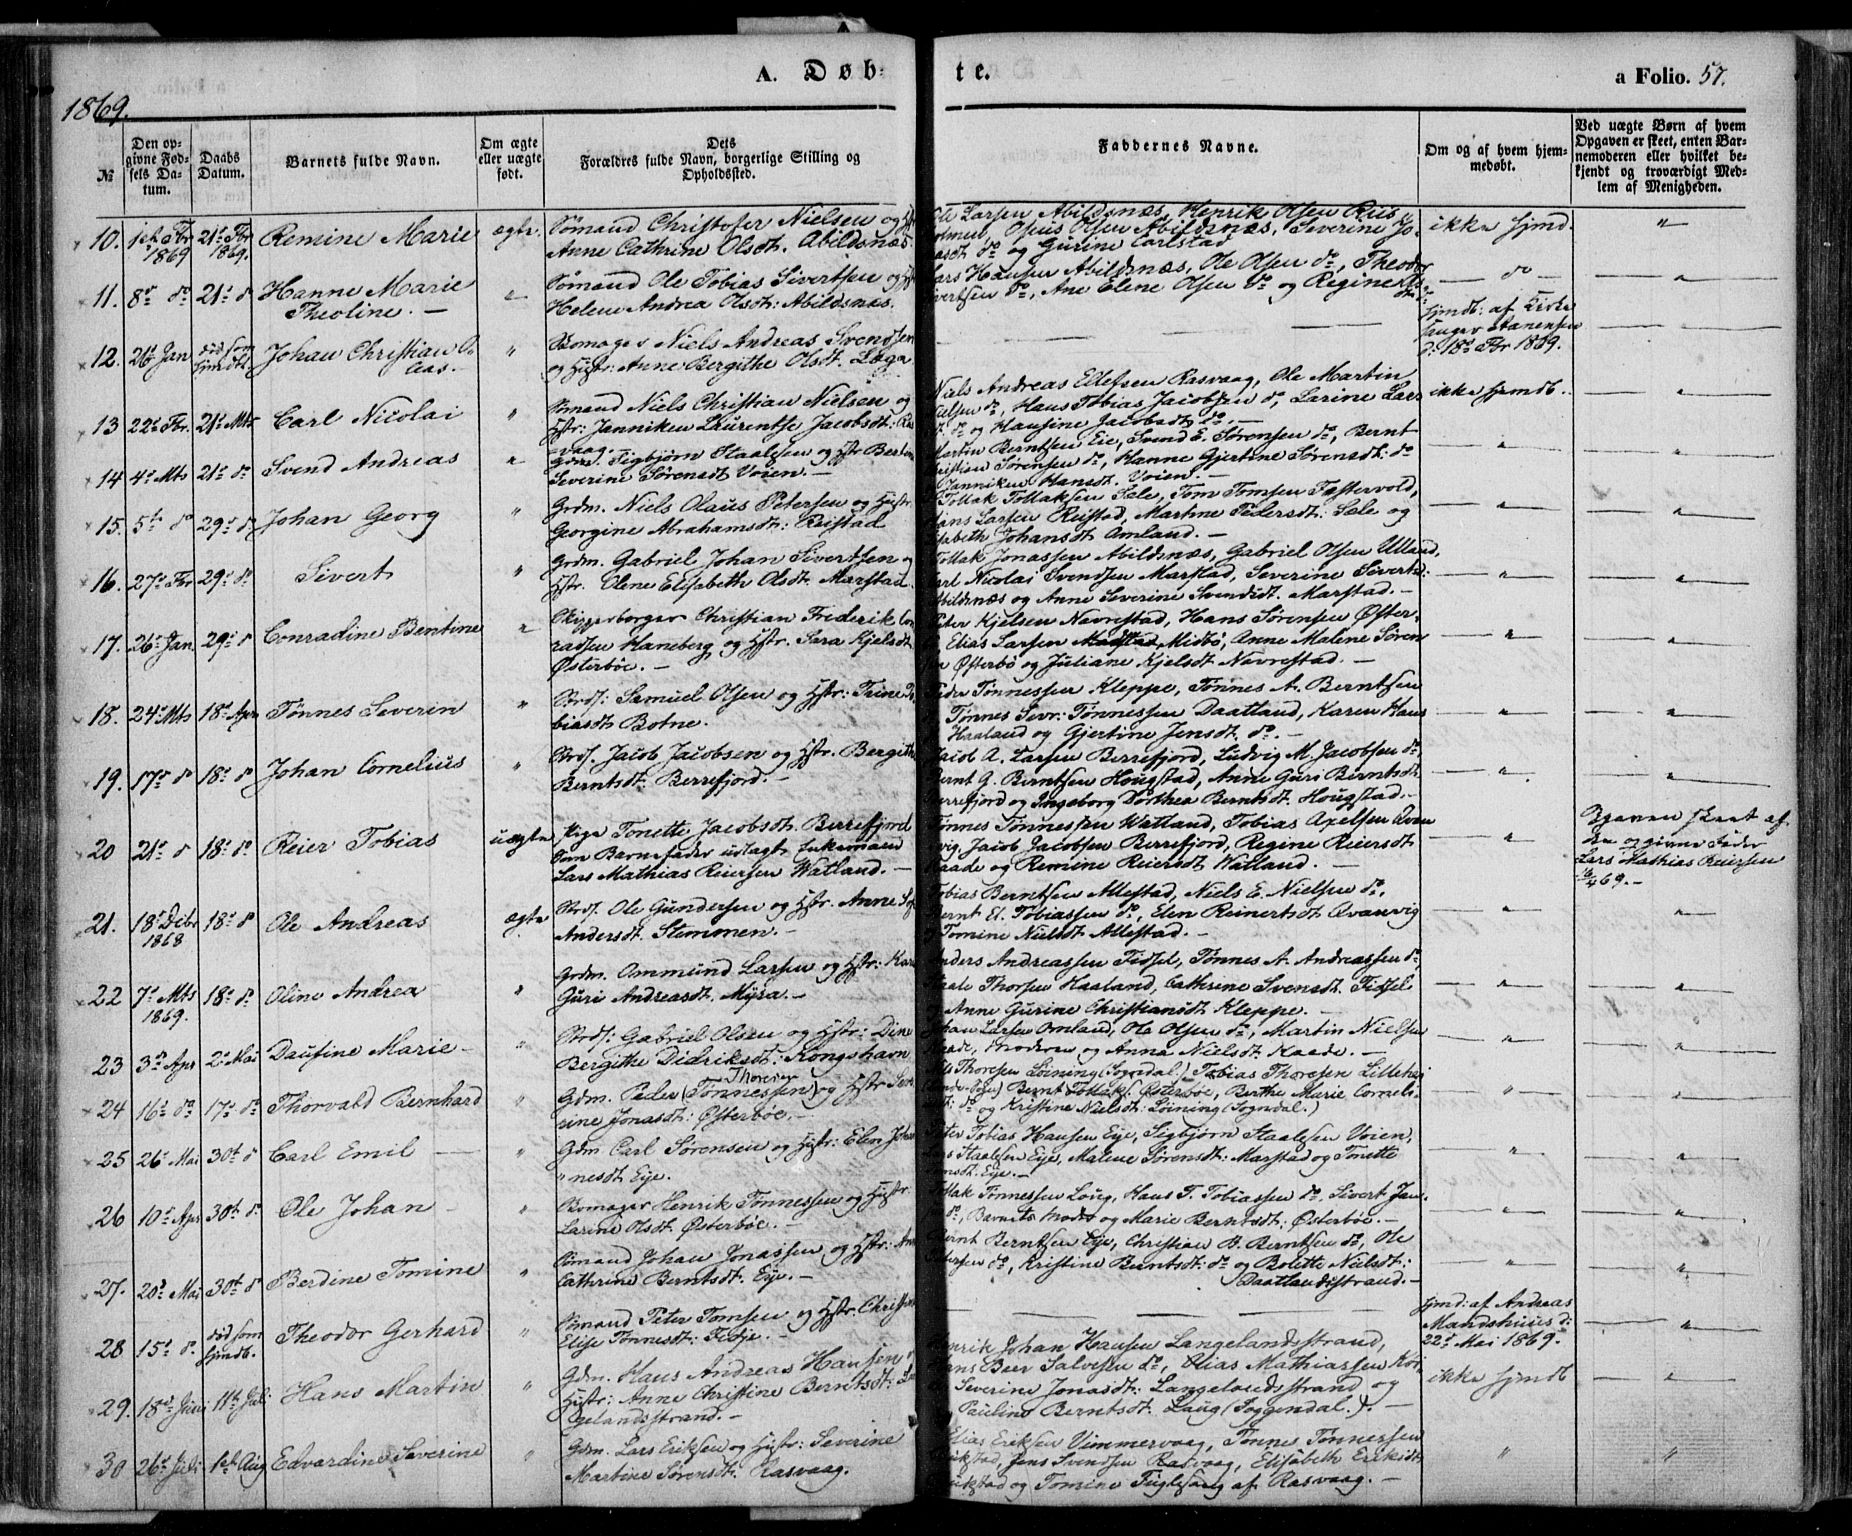 A. Døb-
te.
a Folio. 57.
1869.
№
Den opgivne Fødsels Datum.
Daabs Datum.
Barnets fulde Navn.
Om ægte eller uægte født.
Dets Forældres fulde Navn, borgerlige Stilling og Opholdssted.
Faddernes Navne.
Om og af hvem hjemmedøbt.
Ved uægte Børn af hvem Opgaven er skeet, enten Barnemoderen eller hvilket bekjendt og troværdigt Medlem af Menigheden.
10. 1ste Fbr 1869 21de Fbr 1869. Remine Marie ægte. Sømand Christofer Nielsen og
Anne Cathrine Olsdt. Abildsnæs
Ole Larsen Abildsnæs, Henrik Olsen
Olsen Abildsnæs, Severine
do og Gurine Carlstad
ikke hjmd. "
11. 8de do 21de do Hanne Marie Theoline. — " Sømand Ole Tobias Sivertsen og
Helene Andrea Olsdt: Abildsnæs.
Lars Hansen Abildsnæs, Ole Olsen do, Theodor
Sivertsen do, Ane Elene Olsen do og Regine
— do — "
12. 26de Jan død som hjmdbt. Johan Christian " Bomager Niels Andreas Svendsen
og Hstr: Anne Bergithe Olsdt. Løga
hjmdb: af Kirkesanger Aanensen d: 18de Fbr 1869. "
13 22de Fbr. 21de Mts Carl Nicolai " Sømand Niels Christian Nielsen og
Hstr: Janniken Laurentse Jacobsdt: Rasvaag.
Niels Andreas Ellefsen Rasvaag, Ole Martin
Nielsen do, Hans Tobias Jacobsen do, Larine Lars
do og Hansine Jacobsdt do. —
ikke hjmdb. "
14 4de Mts 21de do Svend Andreas " Grdm. Sigbjørn Staalesen og Hstr Berten
Severine Sørensdt Voien. —
Martin Berntsen Eie, Svend E. Sørensen do, Bernt
Christian Sørensen do, Hanne Gjertine Sørensdt: do
Janniken Hansdt. Voien. —
" "
15. 5te do 29de do Johan Georg " Grdm. Niels Olaus Petersen og Hustr
Georgine Abrahamsdt: Ruestad
Tollak Tollaksen Sæle, Tom Tomsen Fastervold,
Hans Larsen Ruestad, Martine Pedersdt: Sæle og
Elisabeth Johansdt Omland. —
" "
16. 27de Fbr 29de do Sivert " Grdm. Gabriel Johan Sivertsen og
Hstr. Olene Elisabeth Olsdt. Marstad
Tollak Jonassen Abildsnæs, Gabriel Olsen Ulland,
Carl Nicolai Svendsen Marstad, Severine Sivertsd:
Abildsnæs og Anne Severine Svendsdt. Marstad. —
" "
17. 26de Jan 29de do Conradine Bentine " Skipperborger Christian Frederik Con
radsen Haneberg og Hstr. Sara Kjelsdt
Østerbøe. —
Peter Kjelsen Navrestad, Hans Sørensen Øster-
Elias Larsen Midbø, Anne Malene Søren
Østerbø og Juliane Kjelsdt Navrestad. —
" "
18. 24de Mts 18de Apr Tønnes Severin " Strds: Samuel Olsen og Hstr: Trine To
biasdt Botne.
Peder Tønnessen Kleppe, Tønnes A. Berntsen
Tønnes Sevr: Tønnessen Daatland, Karen Hans
Haaland og Gjertine Jensdt. do. —
" "
19. 17de do 18de do Johan Cornelius " Strds. Jacob Jacobsen og Hstr. Bergithe
Berntsdt: Berrefjord. —
Jacob A. Larsen Berrefjord, Ludvig M. Jacobsen do
Bernt G. Berntsen Hougstad, Anne Guri Berntsdt
Berrefjord og Ingeborg Dorthea Berntsdt. Hougstad. —
" "
20 21de do 18de do Reier Tobias uægte Pige Tonette Jacobsdt. Berrefjord
Som Barnefader udlagt Enkemand
Lars Mathias Reiersen Watland. —
Tønnes Tønnessen Watland, Tobias Axelsen Qvan
vig, Jacob Jacobsen Berrefjord, Regine Reiersdt
Kaade og Remine Reiersdt Watland. —
" Opgaven skeet af
den opgivne Fader
Lars Mathias Reiersen
69. —
21. 18de Dcbr 1868 18de do Ole Andreas ægte Strds. Ole Gundersen og Hstr. Anne
Andersdt. Stemmen. —
Tobias Berntsen Allestad, Niels E. Nielsen do,
Bernt El. Tobiassen do, Elen Reinertsdt Qvanvig
Tomine Nielsdt Allestad. —
" "
22 7de Mts 1869. 18de do Oline Andrea " Grdm. Ommund Larsen og Hstr: Kar
Guri Andreasdt. Mysa. —
Anders Andreassen Fidsel, Tønnes A. Andreassen do,
Staale Thorsen Haaland, Cathrine Svensdt. Fidsel
Anne Gurine Christiansdt Kleppe. —
" "
23 3de Apr 2de Mai Daufine Marie — " Strds: Gabriel Olsen og Hstr: Dine
Bergithe Didriksdt: Kongshavn
Johan Larsen Omland, Ole Olsen do, Martin Nielsen
Kaade, Moderen og Anna Nielsdt Kaade. —
" "
24 16de do 17de do Thorvald Bernhard " Gdm. Peder (Tønnessen) Thoresen og Hstr Seve
rine Jonasdt: Østerbøe. —
Thoresen Løining (Sogndal.) Tobias Thoresen Lillehei
Bernt Tollaks. Østerbøe, Berthe Marie Corneli
do og Kristine Nielsdt: Løining (Sogndal.)
" "
25 26de Mai 30te do Carl Emil — " Gdm. Carl Sørensen og Hstr: Elen Johan
nesdt Eye.
Peter Tobias Hansen Eye, Sigbjørn Staalesen Voien,
Staalesen Eye, Malene Sørensdt: Marstad og Tonette
Eye. —
" "
26 10de Apr 30te do Ole Johan — " Bomager Henrik Tønnessen og Hstr
Larine Olsdt Østerbøe. —
Tollak Tønnessen Loug, Hans T. Tobiassen do, Sivert Jan
do, Barnets Moder og Marie Berntsdt: Østerbøe. —
" "
27. 20de Mai 30te do Berdine Tomine " Sømand Johan Jonassen og Hstr: Ann
Cathrine Berntsdt. Eye. —
Bernt Berntsen Eye, Christian B. Berntsen do, Ole
Petersen do, Kristine Berntsdt: do og Bolette Nielsdt:
Daatlandsstrand. —
" "
28 15de do død som hjmdb. Theodor Gerhard " Sømand Peter Tomsen og Hstr. Christine
Elise Tønnesdt: Fidje. —
hjmd: af Andreas Mandshuus d: 22de Mai 1869. "
29. 18de Juni 11te Juli Hans Martin " Gdm. Hans Andreas Hansen
Hstr: Anne Christine Berntsdt: Lan
gelandsstrand. —
Henrik Johan Hansen Langelandsstrand,
Hans Beer Salvesen do, Elias Mathiassen
Severine Jonasdt: Langelandsstrand og
Pauline Berntsdt. Laug (Soggendal.). —
ikke hjmdb "
30 26de Juli 1ste Aug Edvardine Severine " Gdm. Lars Eriksen og Hstr: Severine
Martine Sørensdt: Rasvaag.
Elias Eriksen Vimmervaag, Tønnes Tønnessen
Jens Svendsen Rasvaag, Elisabeth Eriksdt
og Tomine Fuglesang af Rasvaag. —
" "